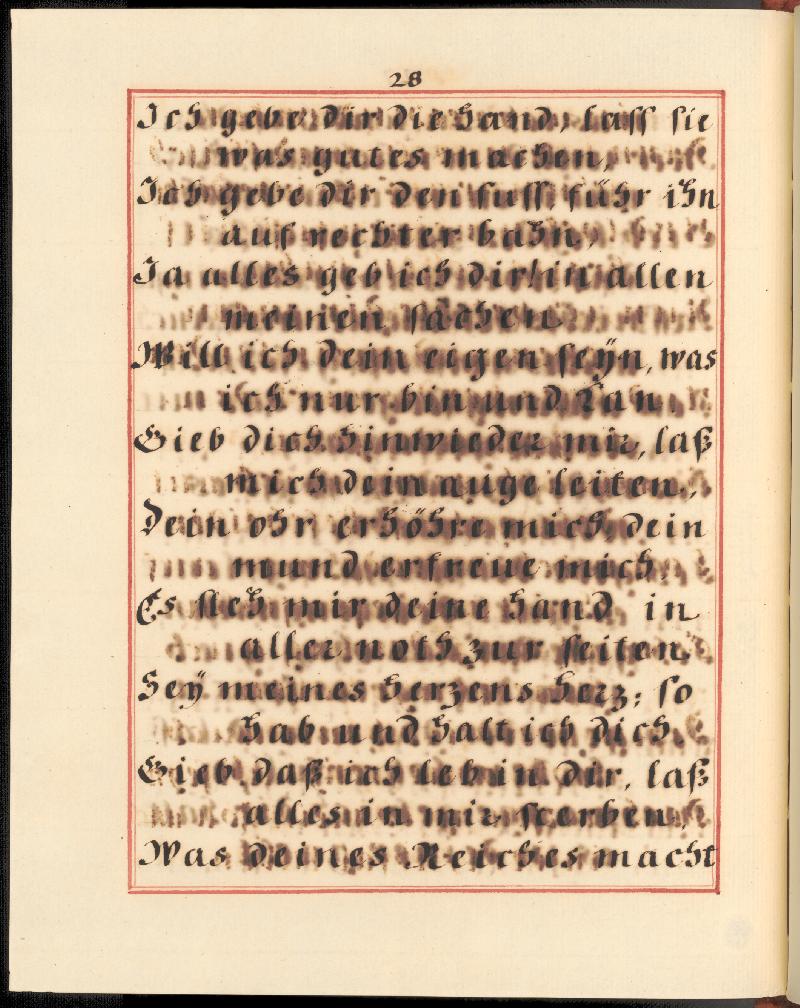 28
Ich gebe dir die hand, lass sie
was gutes machen,
Ich gebe dir den fuss, führ ihn
auf rechter bahn,
Ja alles geb ich dir! in allen
meinen sachen
Will ich dein eigen seÿn, was
ich nur bin und kan
Gieb dich hinwieder mir, laß
mich dein auge leiten,
Dein ohr erhöhre mich, dein
mund erfreue mich,
Es steh mir deine hand in
aller noth zur seiten,
Seÿ meines herzens herz; so
hab und halt ich dich.
Gieb daß ich leb in dir, laß
alles in mir sterben,
Was deines Reiches macht